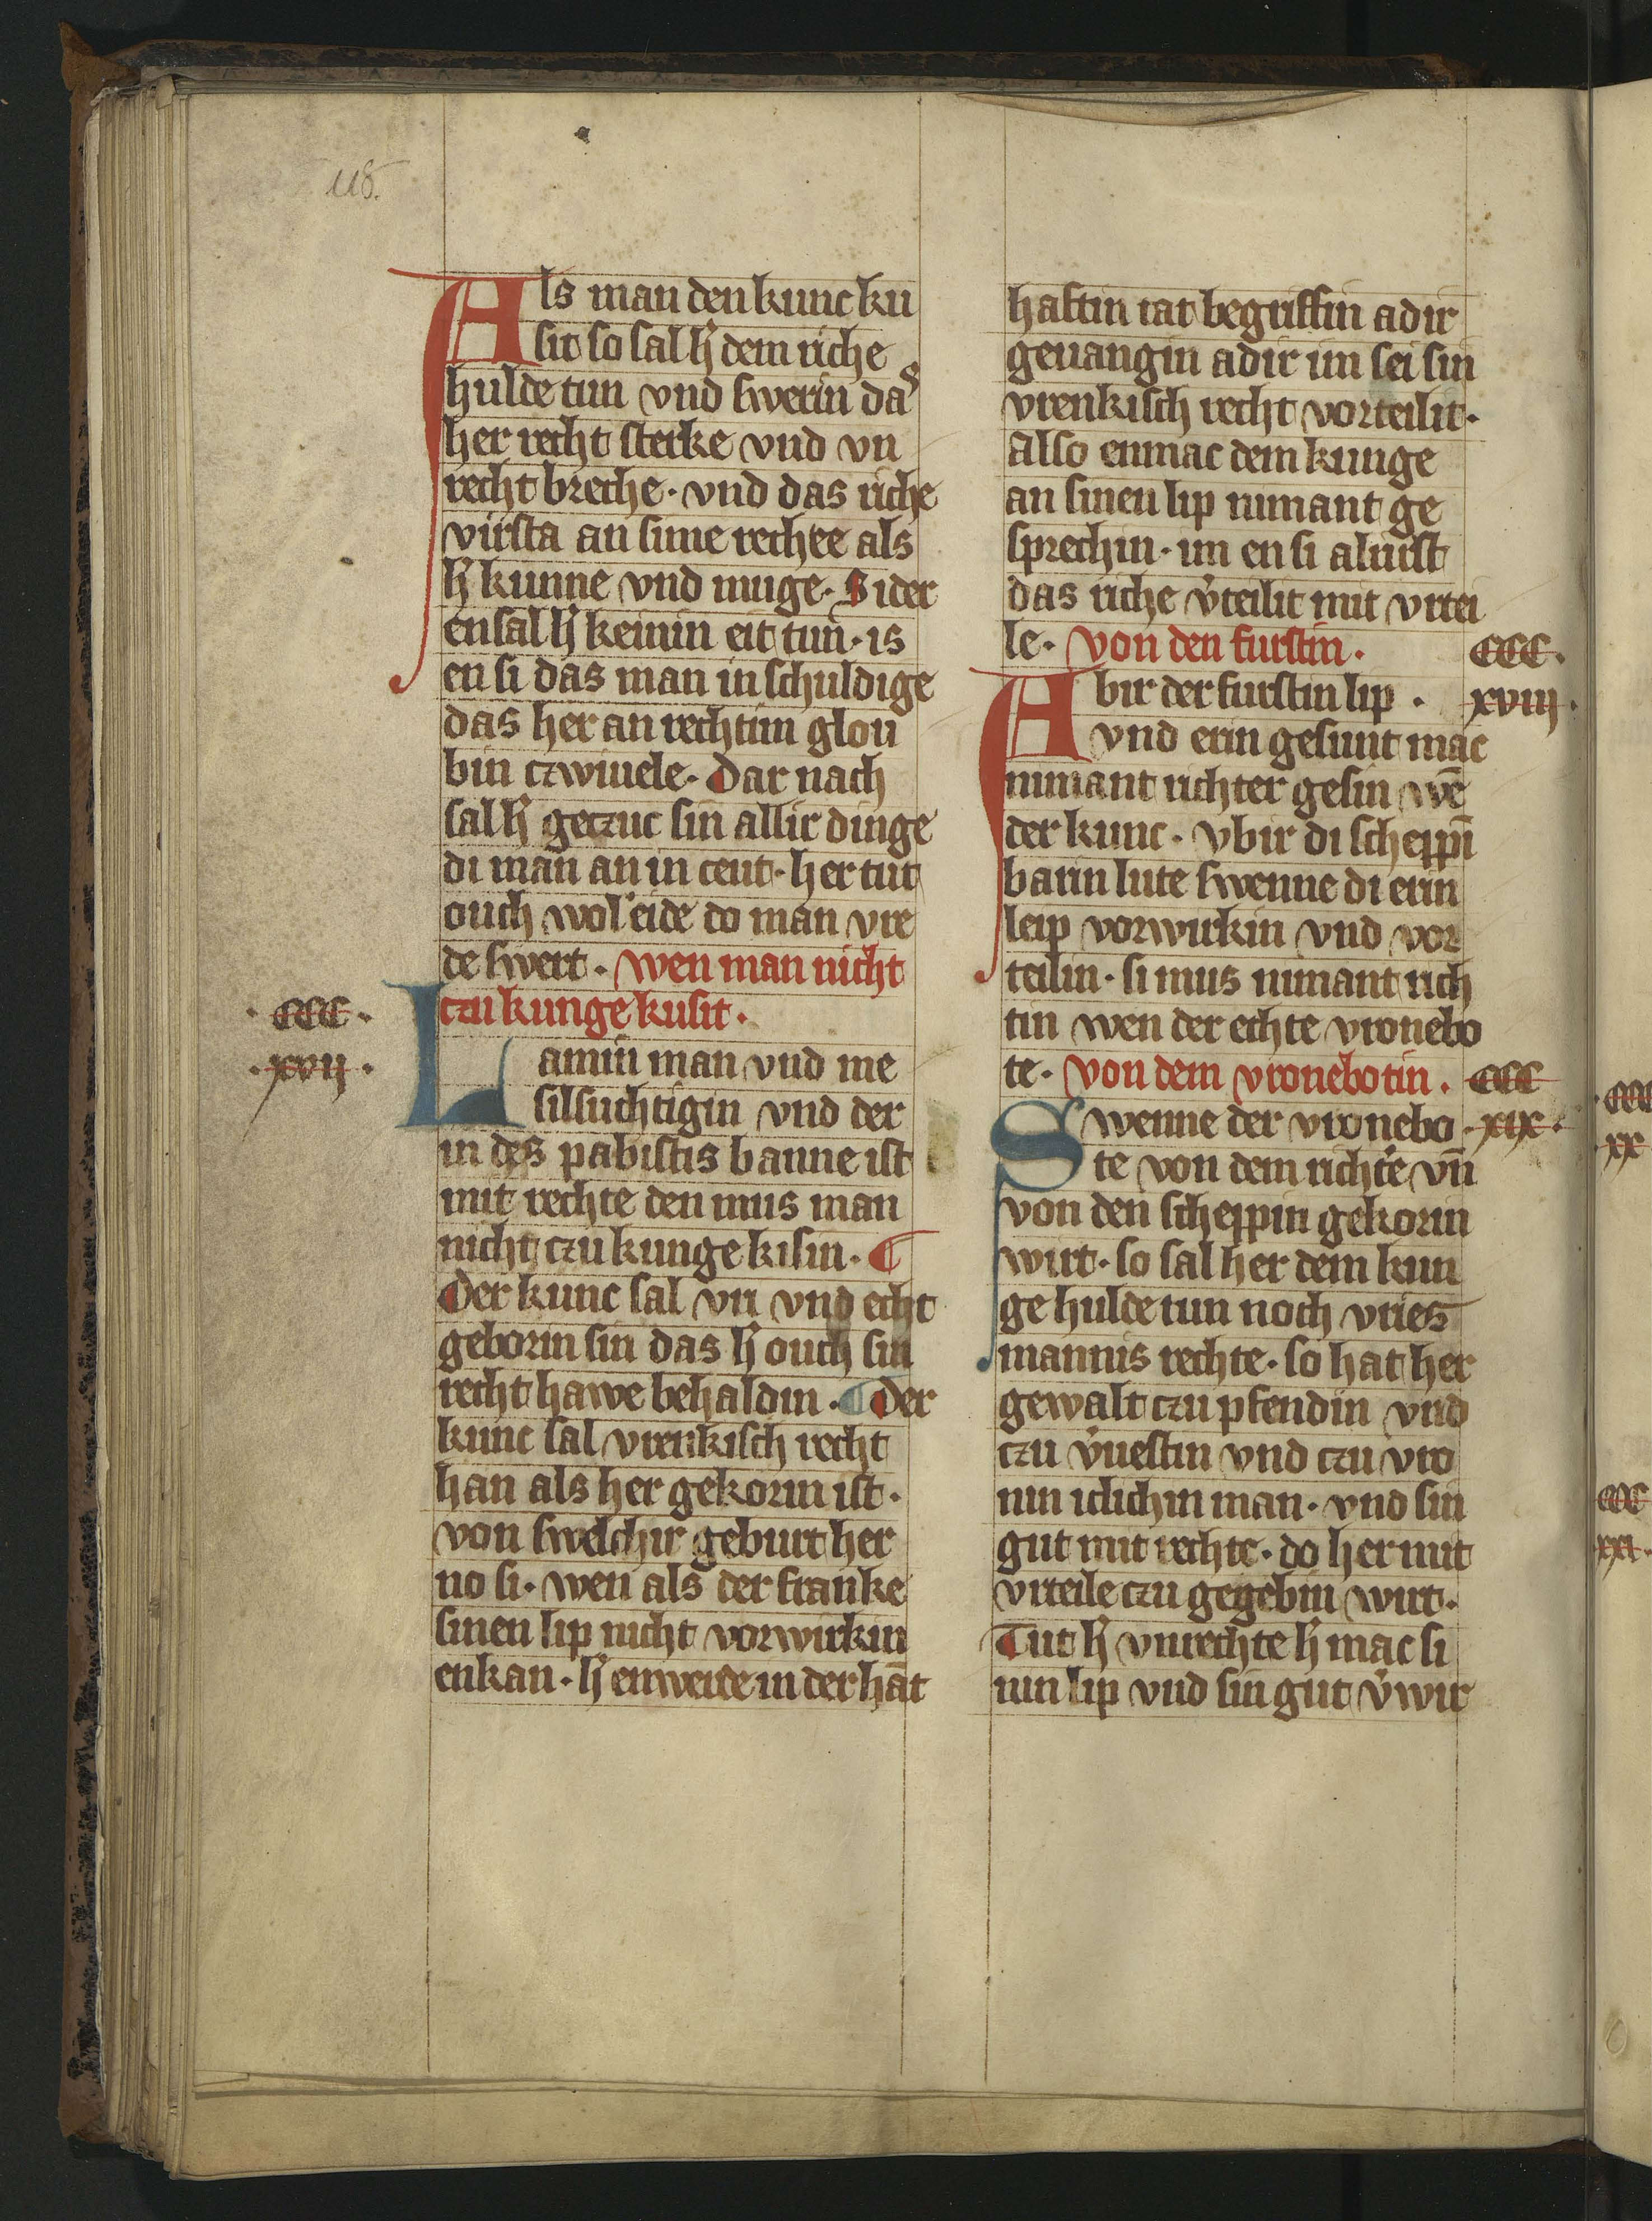 118.
Als man den kunc ku
sit so sal h̄ dem riche
hulde tun vnd swerin das
her recht sterke vnd vn
recht breche · vnd das riche
virsta an sime rechte als
h̄ kunne vnd muge · Sider
ensal h̄ keinin eit tun · is
en si das man in schuldige
das her an rechtim glou
bin czwiuele · Dar nach
sal h̄ geczuc sin allir dinge
di man an in ceut · her tut
ouch wol eide do man vre
de swert · wen man nicht
czu kunge kusit ·
· CCC ·
· xvij ·
Lamin man vnd me
silsuchtigin vnd der
in des pabistis banne ist
mit rechte den mus man
nicht czu kunge kisin · ¶
Der kunc sal vri vnd echt
geborin sin das h̄ ouch sin
recht hawe behaldin · ¶ Der
kunc sal vrenkisch recht
han als her gekorin ist ·
von swelchir geburt her
no si · wen als der franke
sinen lip nicht vorwirkin
enkan · h̄ enwerde in der hāt
haftin tat begriffin adir
geuangin adir im sei sin
vrenkisch recht vorteilit ·
Also enmac dem kunge
an sinen lip nimant ge
sprechin · im en si aluirst
das riche v̄teilit mit vrtei
le · von den furstin ·
CCC ·
xviij ·
Abir der furstin lip ·
vnd erin gesunt mac
nimant richter gesin wē
der kunc · vbir di scheppī
barin lute swenne di erin
leip vorwirkin vnd vor
teilin · si mus nimant rich
tin wen der echte vronebo
te · von dem vronebotin ·
CCC
· xix ·
Swenne der vronebo
te von dem richt̄e vn̄
von den scheppin gekorin
wirt · so sal her dem kun
ge hulde tun noch vries
mannis rechte · so hat her
gewalt czu pfendin vnd
czu v̄uestin vnd czu vro
nin iclichin man · vnd sin
gut mit rechte · do her mit
vrteile czu gegebin wirt ·
Tut h̄ vnrechte h̄ mac si
nin lip vnd sin gut v̄wir
· CCC
· xx
CCC
xxi ·